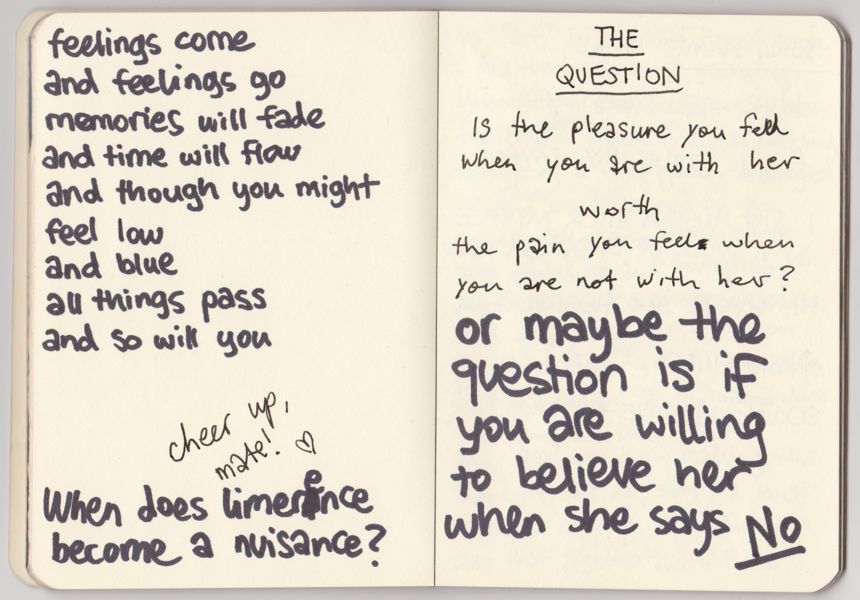 feelings come
and feelings go
memories will fade
and time will flow
and though you might
feel low
and blue
all things pass
and so will you
cheer up,
mate! ♡
When does limerence
become a nuisance?
THE
QUESTION
Is the pleasure you feel
when you are with her
worth
the pain you feel when
you are not with her?
or maybe the
question is if
you are willing
to believe her
when she says NO